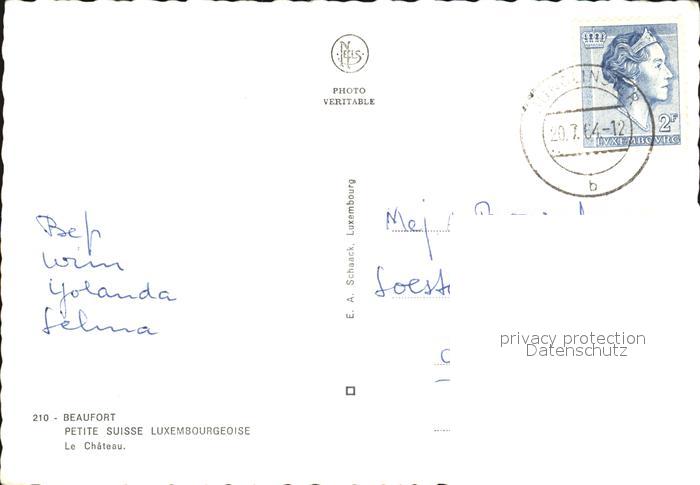 PHOTO
VERITABLE
2F
LUXEMBOURG
20.7.64-12
b
E. A. Schaack, Luxembourg
Bep
Wim
Yolanda
Selma
Mej
privacy protection
Datenschutz
210 - BEAUFORT
PETITE SUISSE LUXEMBOURGEOISE
Le Château.